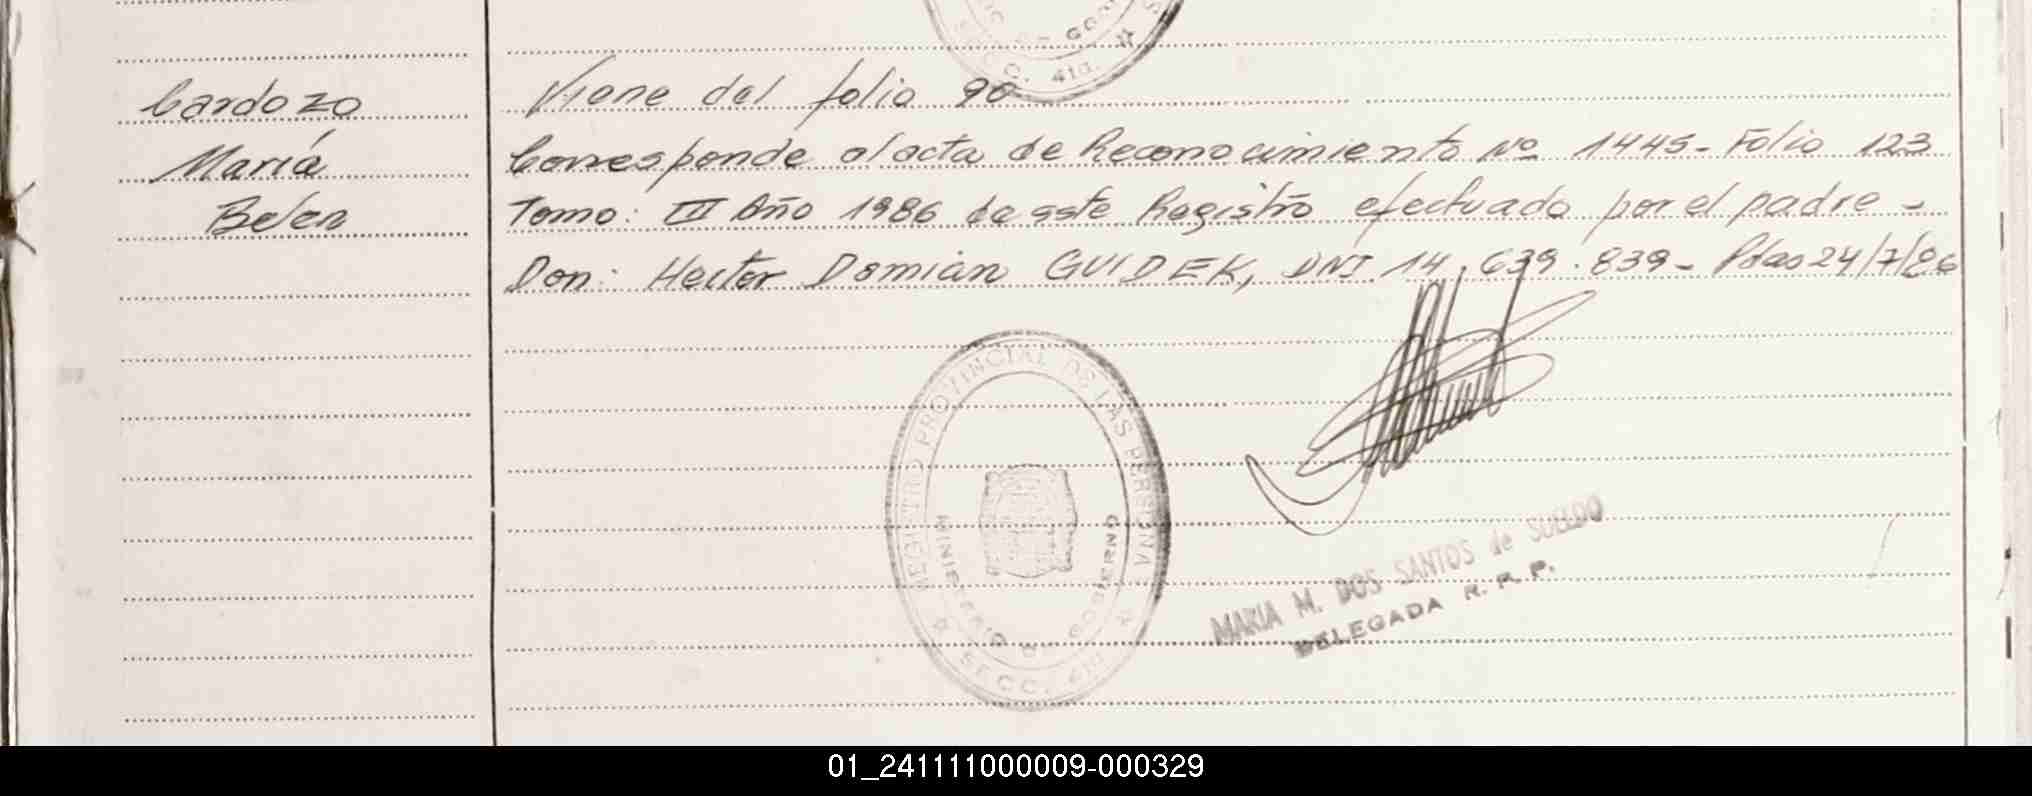 Cardozo
María
Belén
Viene del folio 90
Corresponde al acta de Reconocimiento Nº 1445 - Folio 123
Tomo: III Año 1986 de este Registro efectuado por el padre -
Don: Hector Damián GUIDEK, DNI. 14.639.839 - Pdas 24/7/86
SECC. 4ta.
REGISTRO PROVINCIAL DE LAS PERSONA
MINISTERIO DE GOBIERNO
SECC. 4ta
MARIA M. DOS SANTOS de SUELDO
DELEGADA R. P. P.
01_241111000009-000329